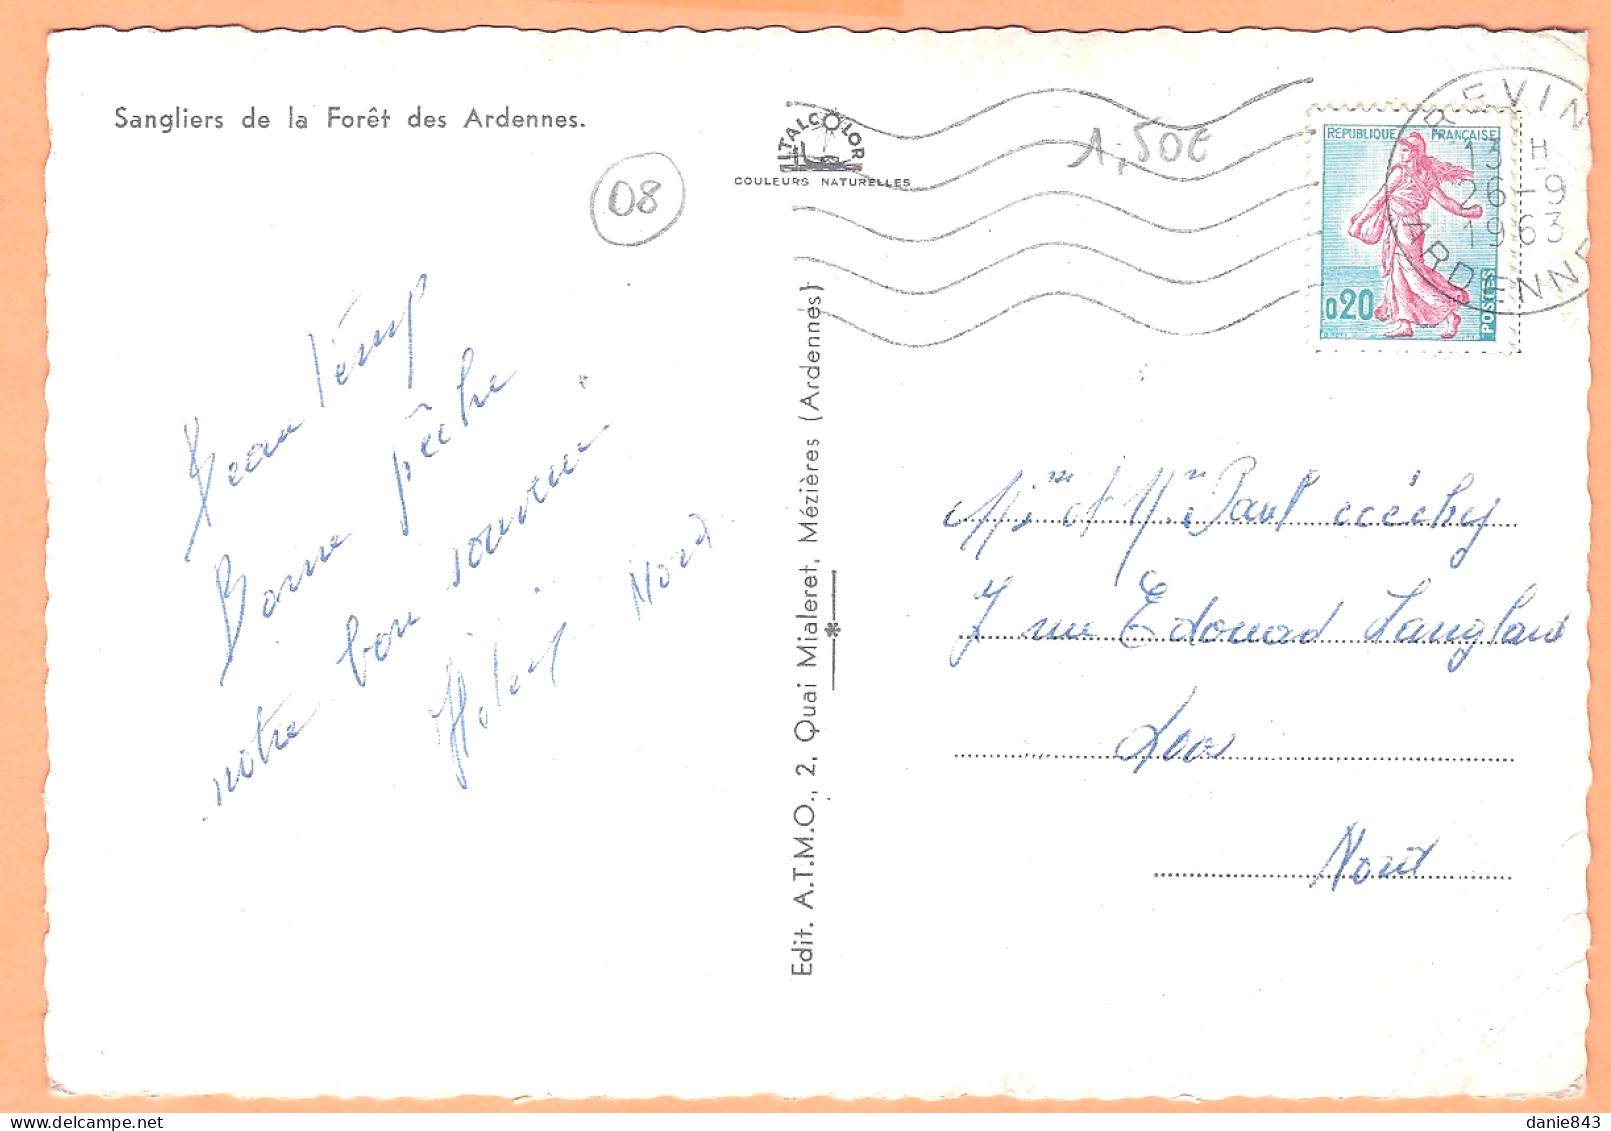 Sangliers de la Forêt des Ardennes.
08
ITALCOLOR
COULEURS NATURELLES
1,50€
REPUBLIQUE FRANÇAISE
0,20
POSTES
REVIN
13 H
26-9
1963
ARDENNES
Beau Temp
Bonne pêche
notre bon souvenir
Nord
Edit. A.T.M.O., 2, Quai Mialeret, Mézières (Ardennes)
Mr et Mme Paul
7 rue Edouard Langlais
Loos
Nord
danie843